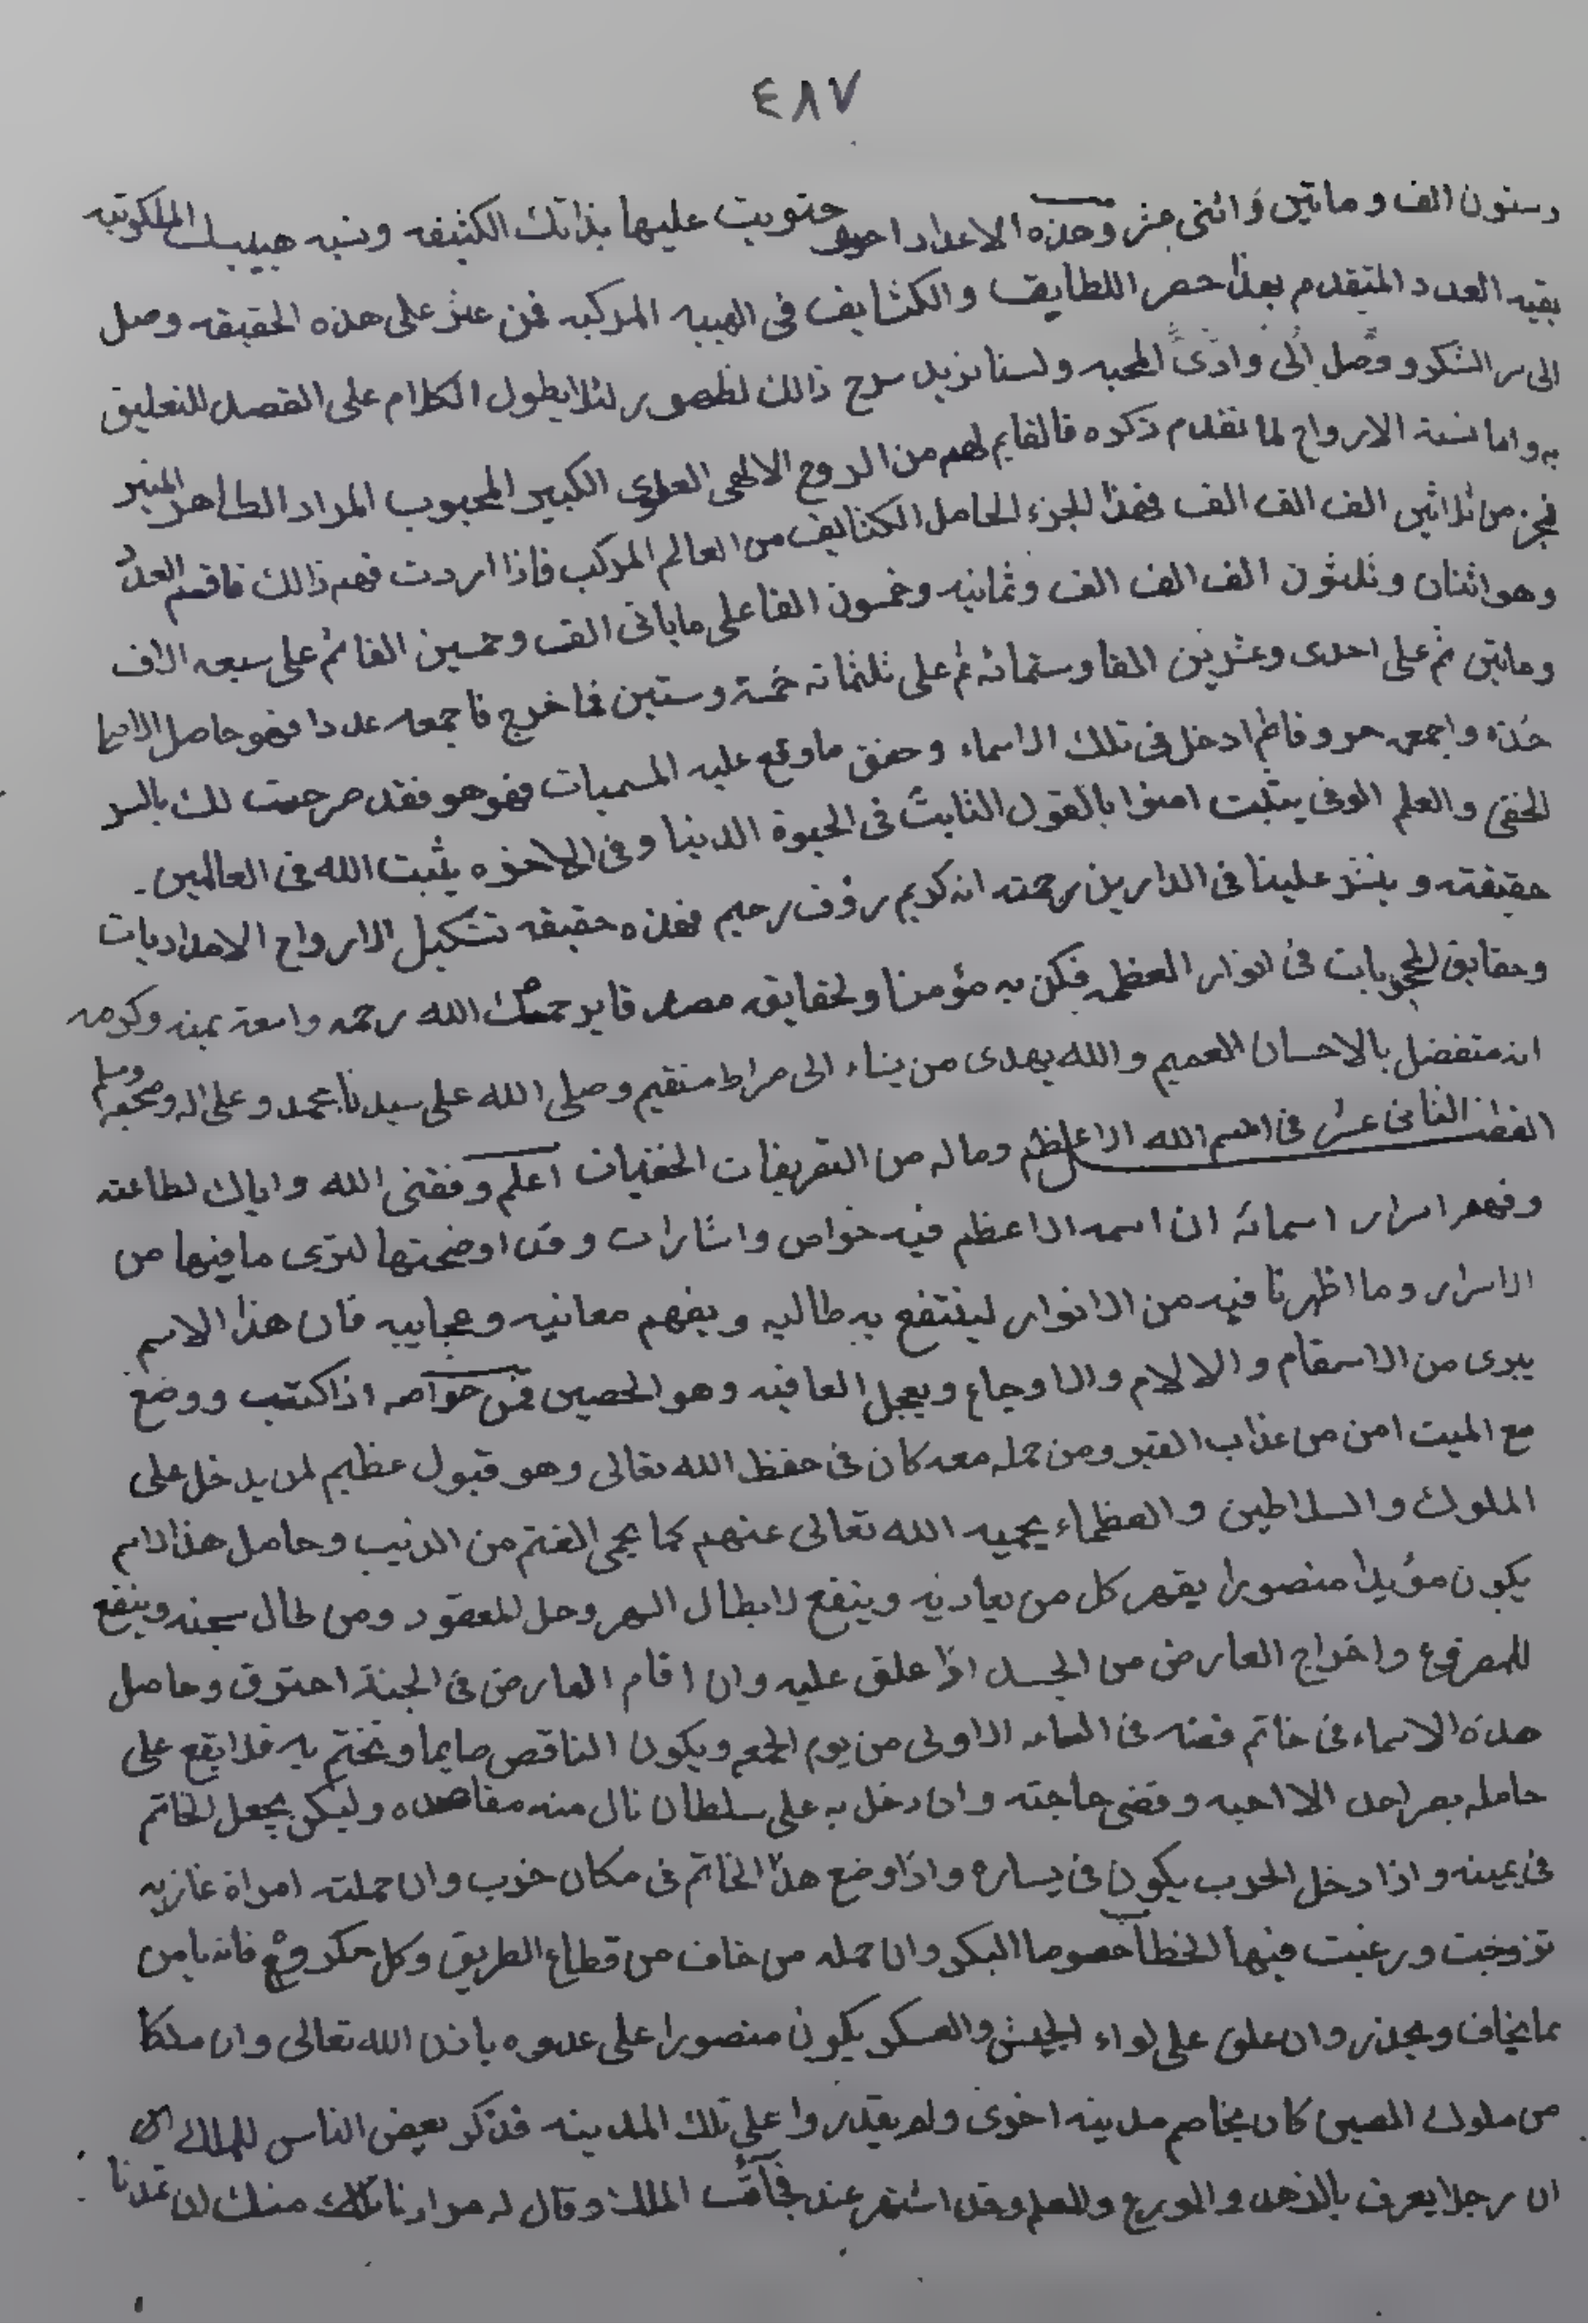 ٤٨٧
وستون الف وماتين وَاثنى عشر وهذه الاعداد احتويت عليها بذاتك الكثيفه ونسبه هيبيك الملكوتيه
بقيه العدد المتقدم بعد حصر اللطايف والكثايف فى الهيبه المركبه فمن عثر على هذه الحقيقه وصل
الى سر الشكر ووصل الى وادى المحبه ولسنا نزيد سرح ذالك لظهور لئلا يطول الكلام على القصد للتعليق
به واما نسبة الارواح لما تقدم ذكره فالقايم لهم من الروح الالهى العلوى الكبير المحبوب المراد الطاهر المنير
فجزء من ثلاثين الف الف الف فهذا الجزء الحامل الكثايف من العالم المركب فاذا اردت فهم ذالك فاقسم العدد
وهو اثنان وثلثون الف الف الف وثمانيه وخمسون الفا على ماياتى الف وخمسين الفا ثم على سبعه الاف
ومايتى ثم على احدى وعشرين الفا وستمائه ثم على ثلثماته خمسة وستين فما خرج فاجمعه عددا فهو حاصل الاسما
خذه واجمع حروفا ثم ادخل فى تلك الاسماء وحقق ماوقع عليه المسميات فهو هو فقد صرحت لك بالسر
الخفى والعلم الوفى يثبت امنوا بالقول الثابت فى الحيوة الدنيا وفى الاخره يثبت الله فى العالمين.
حقيقته وينشر علينا فى الدارين رحمته انه كريم رؤف رحيم فهذه حقيقه تشكيل الارواح الامداديات
وحقايق المحجوبات فى انوار العظمه فكن به مؤمنا ولحقايقه مصدقا يرحمك الله رحمه واسعة بمنه وكرمه
انه متفضل بالاحسان العميم والله يهدى من يشاء الى صراط مستقيم وصلى الله على سيدنا محمد وعلى اله وصحبه وسلم
الفصل الثانى عشر فى اسم الله الاعظم وماله من التعريفات الخفيات اعلم وفقنى الله واياك لطاعته
وفهم اسرار اسمائه ان اسمه الاعظم فيه خواص واشارات وقد اوضحتها لترى مافيها من
الاسرار وما اظهرنا فيه من الانوار لينتفع به طالبه ويفهم معانيه وعجايبه فان هذا الاسم
يبرى من الاسقام والالام والاوجاع ويعجل العافيه وهو الحصين فمن خواصه اذا كتب ووضع
مع الميت امن من عذاب القبر ومن حمله معه كان فى حفظ الله تعالى وهو قبول عظيم لمن يدخل على
الملوك والسلاطين والعظماء يحميه الله تعالى عنهم كما يحمى الغنم من الذئيب وحامل هذا الاسم
يكون مؤيدا منصورا يقهر كل من يعاديه وينفع لابطال السحر وحل المعقود ومن طال سجنه وينفع
للمصروع واخراج العارض من الجسد اذا علق عليه وان اقام العارض فى الجثة احترق وحامل
هذه الاسماء فى خاتم فضه فى الساعه الاولى من يوم الجمعه ويكون الناقص صايما وتختم به فلا يقع على
حامله بصر احد الا احبه وقضى حاجته وان دخل به على سلطان نال منه مقاصده وليكن يجعل الخاتم
فى يمينه واذا دخل الحرب يكون فى يساره واذا وضع هذا الخاتم فى مكان خرب وان حملته امراة عازبه
تزوجت ورغبت فيها الخطا خصوصا البكر وان حمله من خاف من قطاع الطريق وكل مكروه فانه يامن
مما يخاف ويحذر وان علق على لواء الجيش والعسكر يكون منصورا على عدوه باذن الله تعالى وان ملكا
من ملوك الصين كان يخاصم مدينه اخرى ولم يقدروا على تلك المدينه فذكر بعض الناس للملك
ان رجلا يعرف بالزهد والورع والعلم وقد اشتهر عند الملك وقال له مرادنا منك ان تمدنا